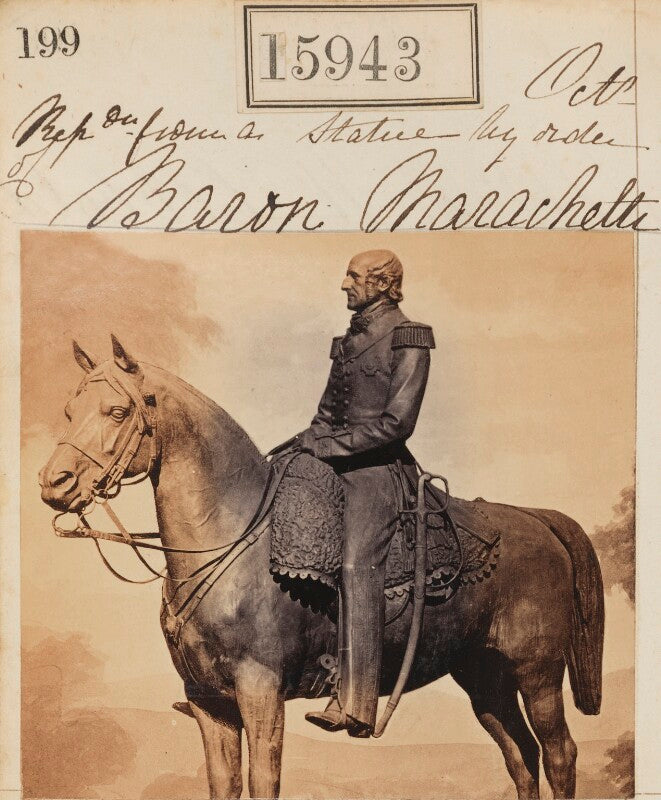 199
15943
Oct
Repdn from a Statue by order
of
Baron Marachetti